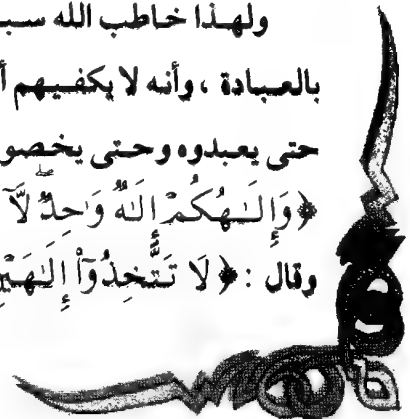 ولهذا خاطب الله
بالعبادة ، وأنه لا يكفيهم
حتى يعبدوه وحتى يخصو
﴿ وَإِلَٰهُكُمْ إِلَٰهٌ وَٰحِدٌ لَّآ
وقال : ﴿ لَا تَتَّخِذُوٓا۟ إِلَٰهَيْنِ